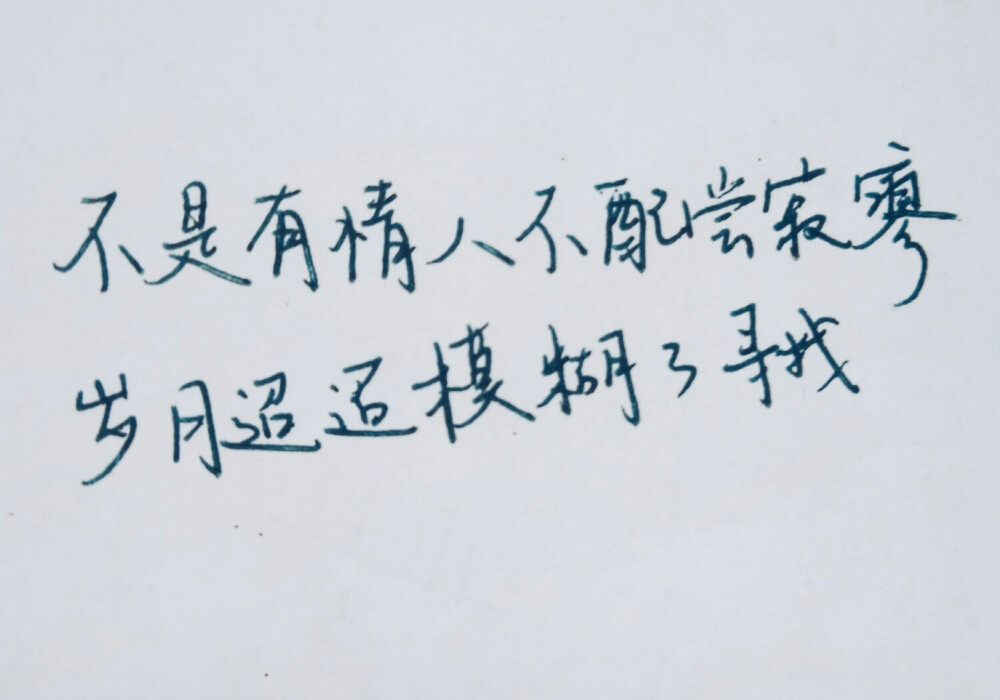 不是有情人不配尝寂寥
岁月迢迢模糊了寻找